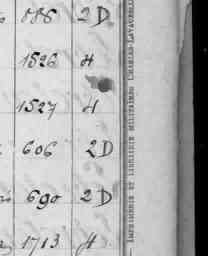 888 2D
1526 H
1527 H
606 2D
690 2D
1713 H
— IMPRIMERIE ET LIBRAIRIE MILITAIRES CHARLES-LAVAUZELLE